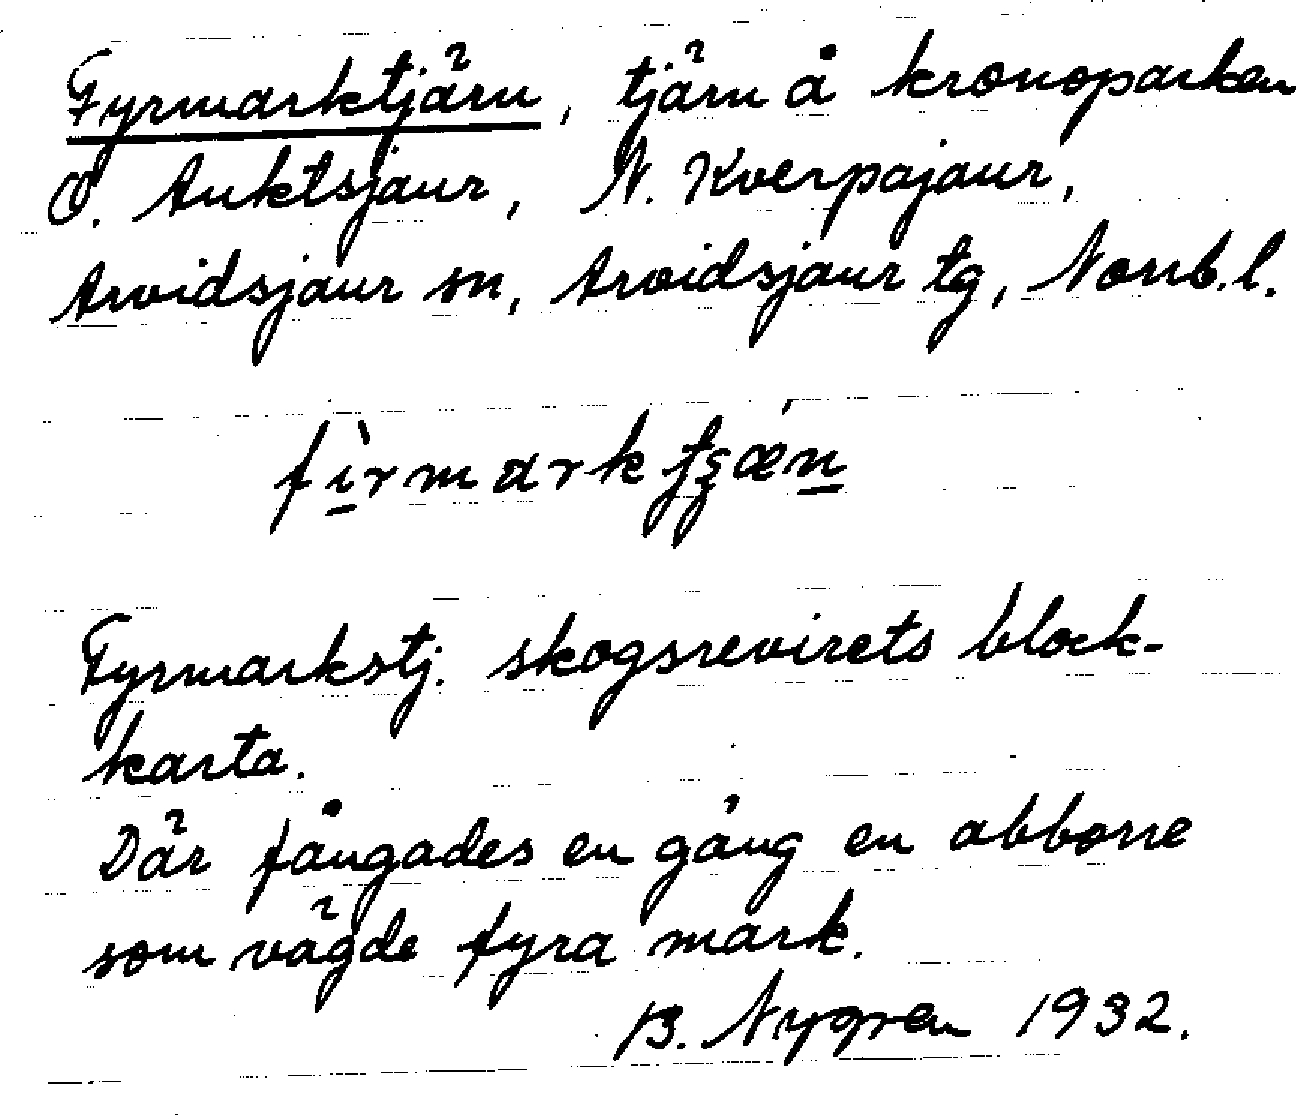 Fyrmarktjärn, tjärn å kronoparken
Ö. Auktsjaur, N. Kverpajaur,
Arvidsjaur sn, Arvidsjaur tg, Norrb.l.
fìrmarktʂǽn
Fyrmarkstj. skogsrevirets block-
karta.
Där fångades en gång en abborre
som vägde fyra mark.
B. Nygren 1932.